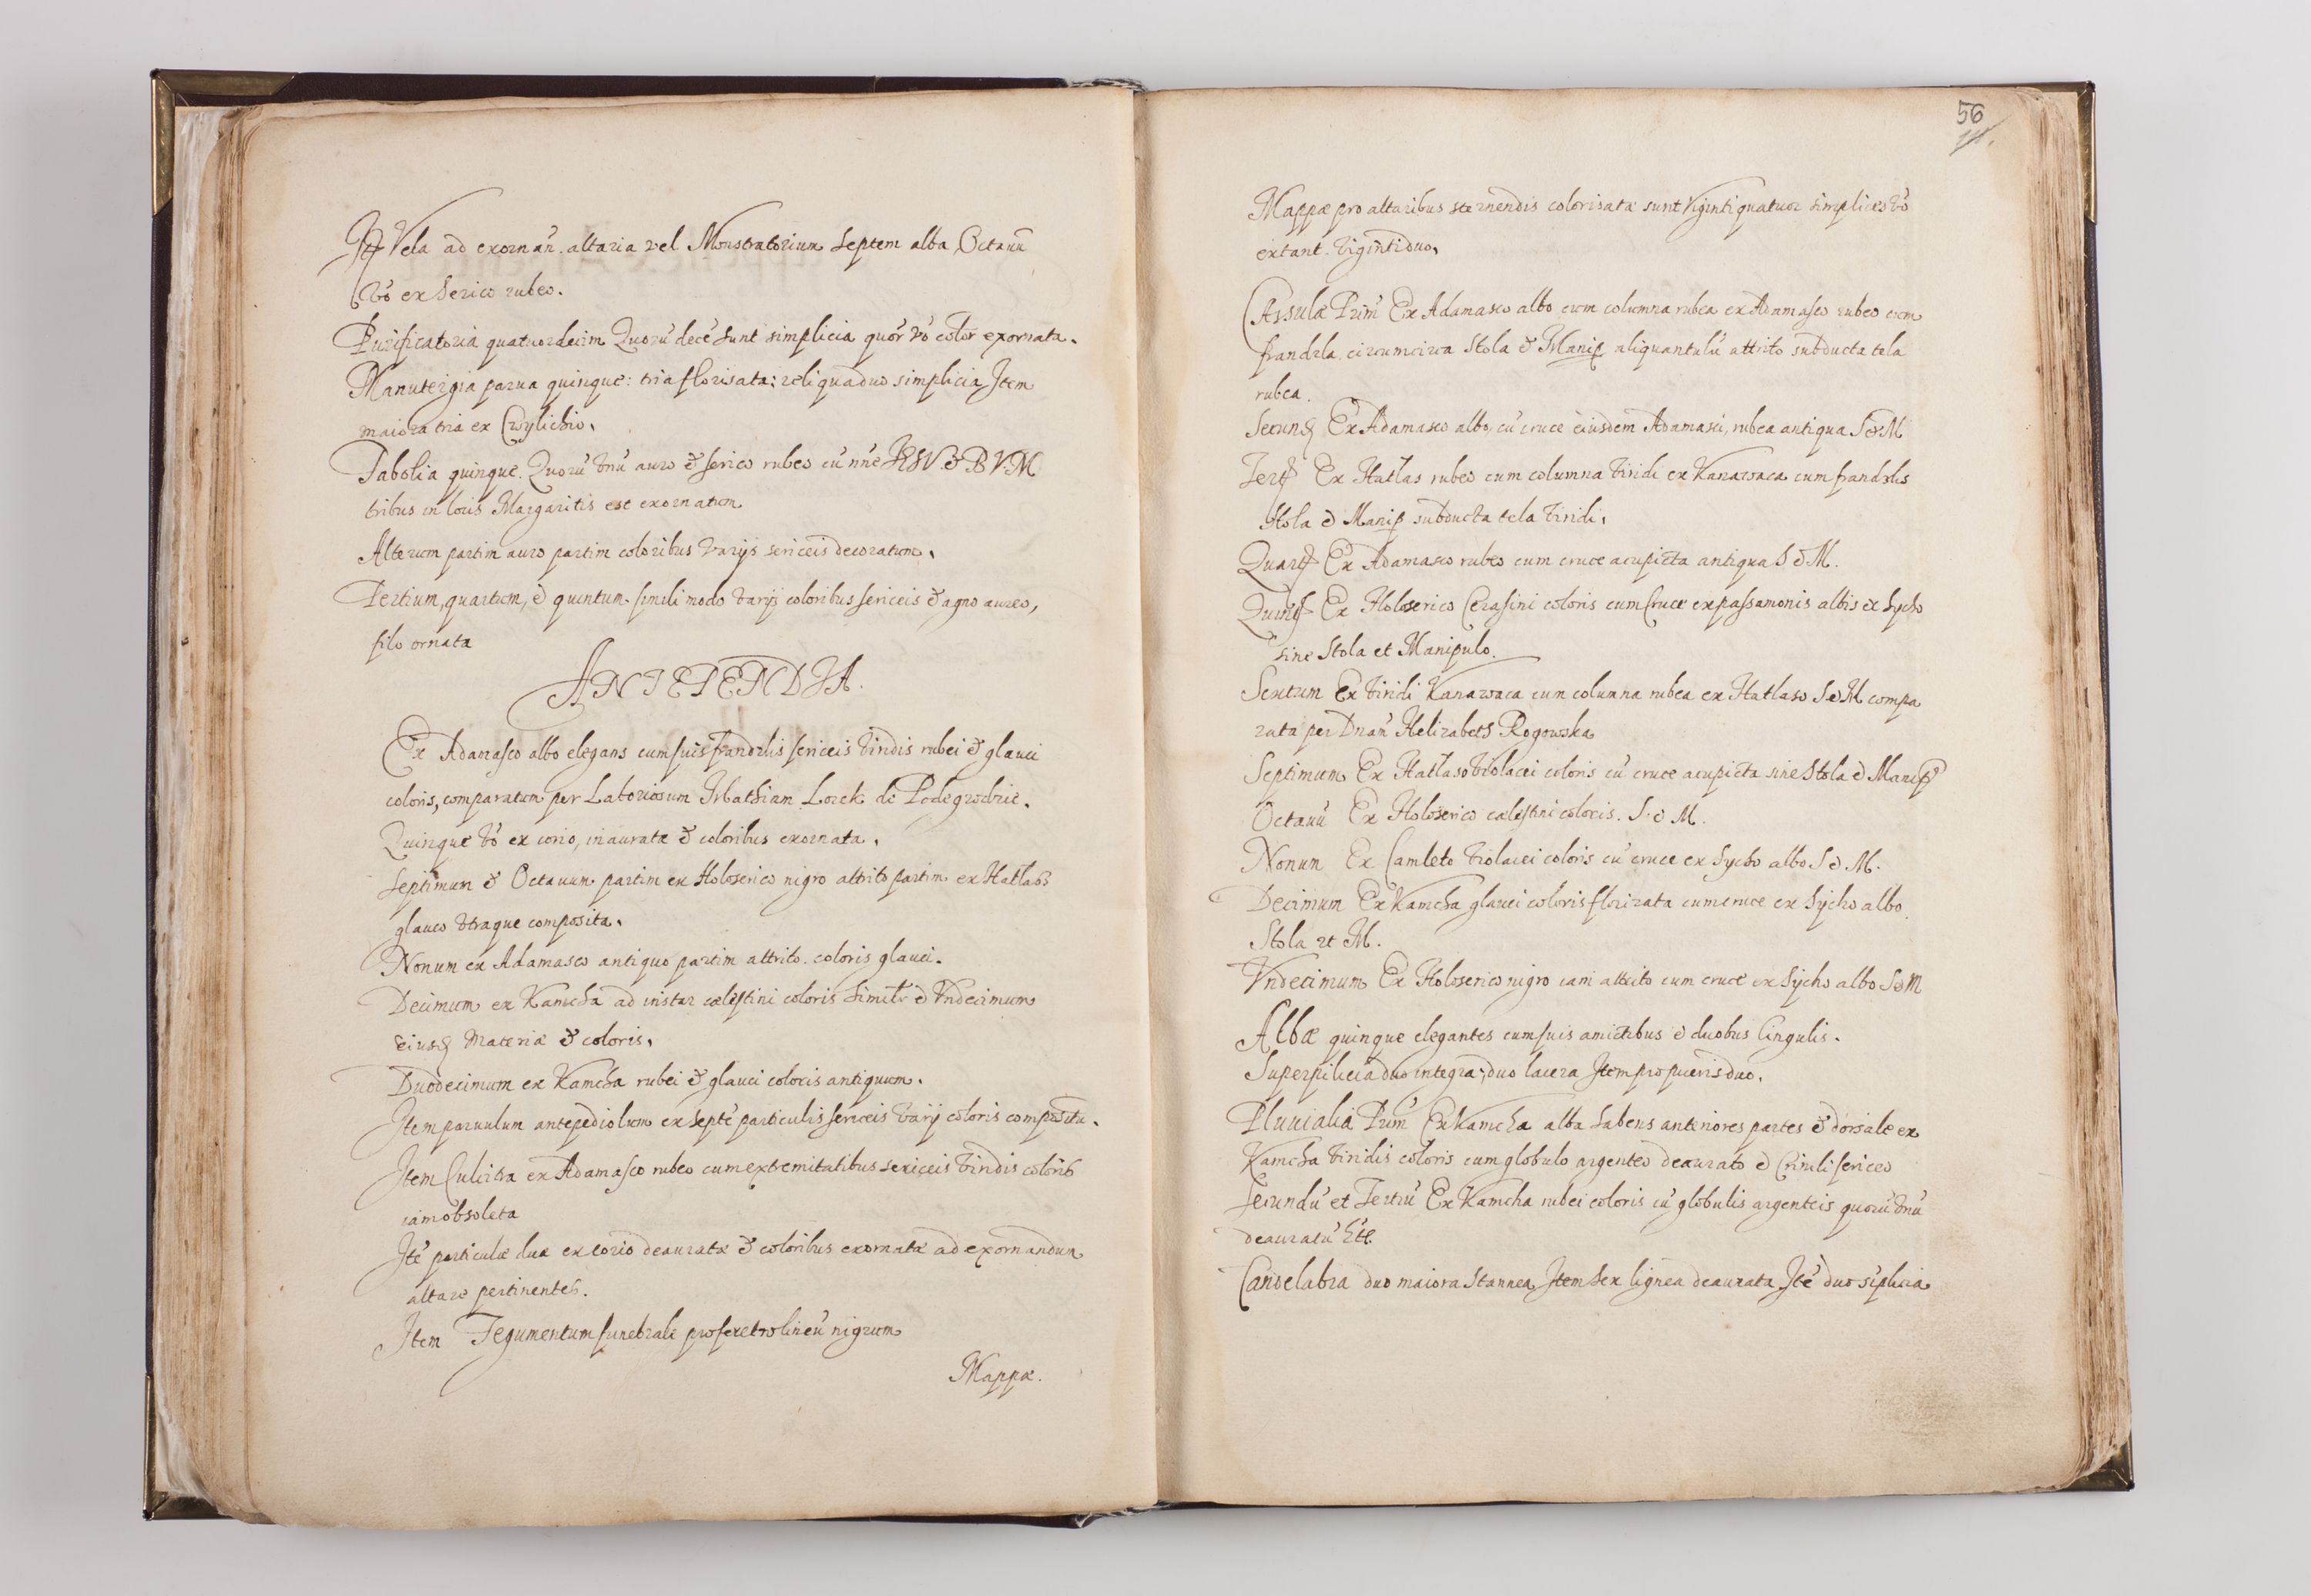 Itē Vela ad exornan. altaria vel Monstratorium Septem alba Octauū
vō ex Serico rubeo.
Purificatoria quatuordecim Quorū decē sunt simplicia quōr vō color exornata.
Manutergia parua quinque: tria florisata: reliqua duo simplicia Item
maiora tria ex Cwylichio.
Pabolia quinque. Quorū vnū auro & serico rubeo cū nn̄e IESV & B V. M
tribus in locis Margaritis est exornatum
Alterum partim auro partim coloribus varijs sericeis decoratum.
Tertium, quartum, & quintum simili modo varijs coloribus sericeis & agno aureo,
filo ornata
ANTEPENDIA.
Ex Adamasco albo elegans cum suis frandzlis sericeis viridis rubei & glauci
coloris, comparatum per Laboriosum Mathiam Lorek de Podegrodzie.
Quinque vō ex corio, inaurata & coloribus exornata.
Septimum & Octauum partim ex Holoserico nigro attrito partim ex Hatlaso
glauco vtraque composita.
Nonum ex Adamasco antiquo partim attrito. coloris glauci.
Decimum ex Kamcha ad instar cælestini coloris similr & Vndecimum
eiusd Materiæ & coloris.
Duodecimum ex Kamcha rubei & glauci coloris antiquum.
Item paruulum antepediolum ex septē particulis sericeis varij coloris compositū.
Item Culcitra ex Adamasco rubeo cum extremitatibus sericeis viridis coloris
iam obsoleta
Itē particulæ duæ ex corio deauratæ & coloribus exornatæ ad exornandum
altare pertinentes.
Item Tegumentum funebrale pro feretro lineū nigrum
Mappæ.
56
Mappæ pro altaribus sternendis colorisatæ sunt Viginti quatuor simplices vō
extant. viginti duo,
CAsulæ Prim̄ Ex Adamasco albo cum columna rubea ex Adamasco rubeo cum
frandzla circumcirca Stola & Manip aliquantulū attrito subducta tela
rubea.
Secund Ex Adamasco albo, cū cruce eiusdem Adamasci, rubea antiqua S & M
Tert Ex Hatlas rubeo cum columna viridi ex Kanawaca cum frandzlis
Stola & Manip subducta tela viridi,
Quart Ex Adamasco rubeo cum cruce acupicta antiqua S & M.
Quint Ex Holoserico Cerasini coloris cum Cruce ex passamonis albis ex Sycho
sine Stola et Manipulo.
Sextum Ex viridi Kanawaca cum columna rubea ex Hatlaso S & M compa
rata per Dnam̄ Helizabeth Rogowska
Septimum Ex Hatlaso violacei coloris cū cruce acupicta sine Stola & Manip
Octauū Ex Holoserico cælestini coloris. S. & M.
Nonum Ex Camleto violacei coloris cū cruce ex Sycho albo S & M.
Decimum Ex Kamcha glauci coloris florizata cum cruce ex Sycho albo.
Stola et M.
Vndecimum Ex Holoserico nigro iam attrito cum cruce ex Sycho albo S & M
Albæ quinque elegantes cum suis amictibus & duobus Cingulis.
Superpilicia duo integra; duo lacera Item pro pueris duo.
Pluuialia Prim̄ Ex Kamcha alba habens anteriores partes & dorsale ex
Kamcha viridis coloris cum globulo argenteo deaurato & Crinili sericeo
Secundū et Tertiū Ex Kamcha rubei coloris cū globulis argenteis quorū vnū
deauratū
Candelabra duo maiora Stannea Item Sex lignea deaurata Itē duo sīplicia